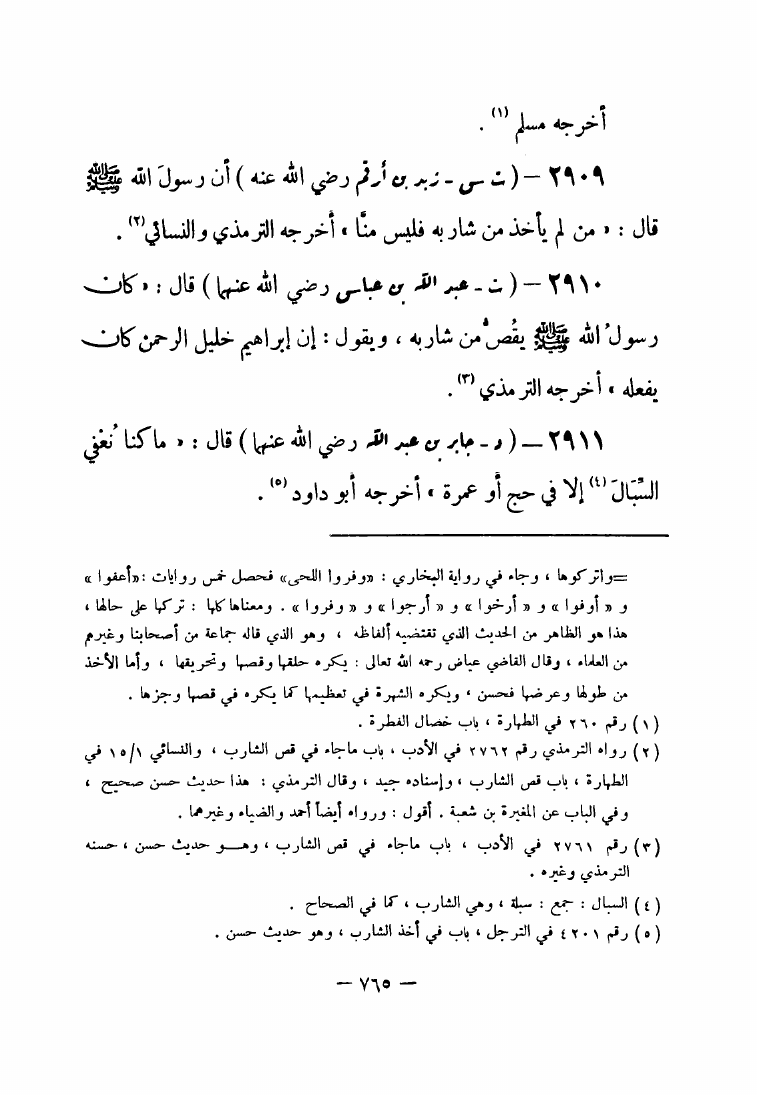 أخرجه مسلم (١) .
٢٩٠٩ – ( ت س - زيد بن أرقم رضي الله عنه ) أن رسولَ الله ﷺ
قال : « من لم يأخذ من شاربه فليس منَّا » أخرجه الترمذي والنسائي (٢) .
٢٩١٠ – ( ت - عبد الله بن عباس رضي الله عنهما ) قال : « كان
رسولُ الله ﷺ يقُصُّ من شاربه ، ويقول : إن إبراهيم خليل الرحمن كان
يفعله » أخرجه الترمذي (٣) .
٢٩١١ – ( د - جابر بن عبد الله رضي الله عنهما ) قال : « ما كنا نُعْفي
السِّبَالَ (٤) إلا في حج أو عمرة » أخرجه أبو داود (٥) .
=واتركوها ، وجاء في رواية البخاري : «وفروا اللحى» فحصل خمس روايات : «أعفوا »
و « أوفوا » و « أرخوا » و « أرجوا » و « وفروا » . ومعناها كلها : تركها على حالها ،
هذا هو الظاهر من الحديث الذي تقتضيه ألفاظه ، وهو الذي قاله جماعة من أصحابنا وغيرهم
من العلماء ، وقال القاضي عياض رحمه الله تعالى : يكره حلقها وقصها وتحريقها ، وأما الأخذ
من طولها وعرضها فحسن ، ويكره الشهرة في تعظيمها كما يكره في قصها وجزها .
(١) رقم ٢٦٠ في الطهارة ، باب خصال الفطرة .
(٢) رواه الترمذي رقم ٢٧٦٢ في الأدب ، باب ماجاء في قص الشارب ، والنسائي ١٥/١ في
الطهارة ، باب قص الشارب ، وإسناده جيد ، وقال الترمذي : هذا حديث حسن صحيح ،
وفي الباب عن المغيرة بن شعبة . أقول : ورواه أيضاً أحمد والضياء وغيرهما .
(٣) رقم ٢٧٦١ في الأدب ، باب ماجاء في قص الشارب ، وهو حديث حسن ، حسنه
الترمذي وغيره .
(٤) السبال : جمع : سبلة ، وهي الشارب ، كما في الصحاح .
(٥) رقم ٤٢٠١ في الترجل ، باب في أخذ الشارب ، وهو حديث حسن .
– ٧٦٥ –